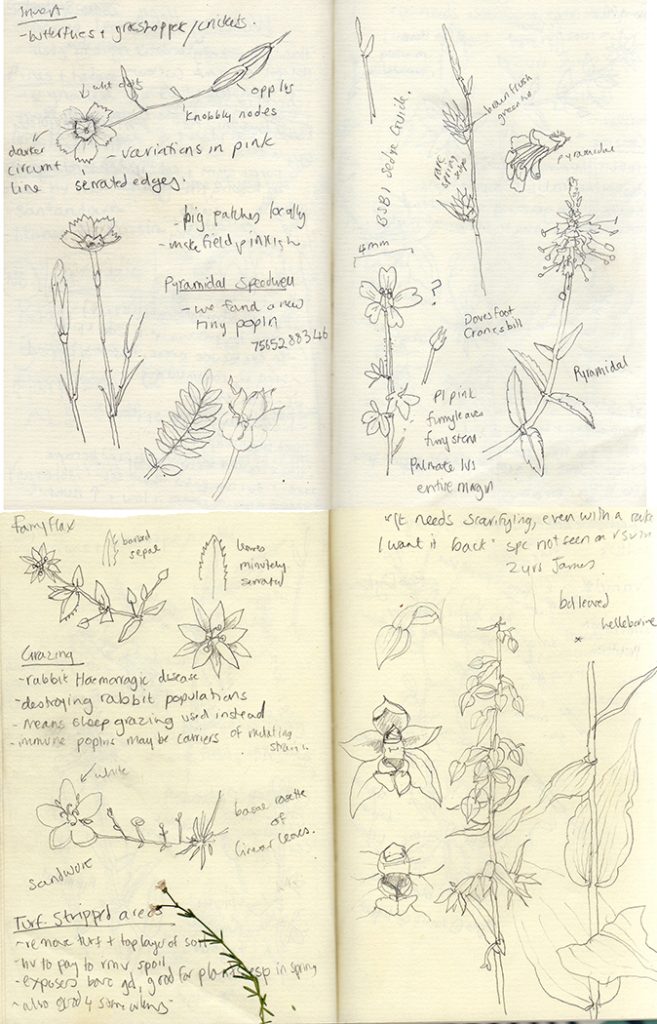 Invert
- butterflies + grasshopper/crickets.
wht dots
opp lvs
knobbly nodes
darker
circumf
line
- variations in pink
serrated edges.
- big patches locally
- make field pinkish
Pyramidal Speedwell
- we found a new
tiny popln
7565288346
BSBI Sedge Guide.
rare
spring
sedge
brown flush
green
pyramidal
4mm
?
Dovesfoot
Cranesbill
Pl pink
furry leaves
furry stem
Palmate lvs
entire margn
Pyramidal
Fairy flax
barbed
sepal
leaves
minutely
serrated
Grazing
- rabbit Haemorragic disease
- destroying rabbit populations
- means sheep grazing used instead
- immune poplns may be carriers of mutating
strain.
white
basal rosette
of
linear leaves.
Sandwort
Turf Stripp'd areas
- remove turf + top layer of soil
- hv to pay to rmv spoil
- exposes bare gd, good for plants esp in spring
- also good 4
"It needs scarifying, even with a rake
I want it back" spc not seen on
2 yrs James
leaved
helleborine
*